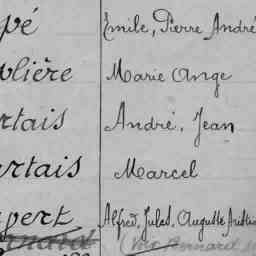 pé Émile, Pierre André
blière Marie Ange
rtais André, Jean
artais Marcel
pert Alfred, Jules, Auguste
(voir Bernard